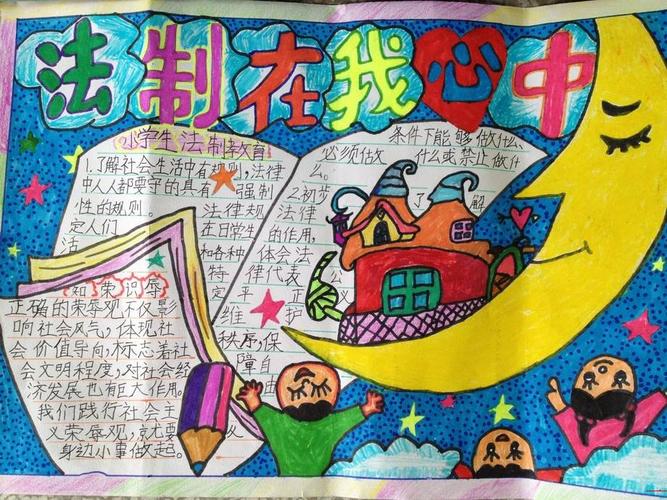 法制在我心中
小学生法制教育
1.了解社会生活中有规则,法律
中人人都要守的具有 强制
性的规则。 法律规
定人们 在日常生
活 和各种
特
定
条件下能够做什么、
必须做 什么或禁止做什
么。
2.初步 了 解
法律
的作用,
体会法
律代表 公
平 正 义
维 护
秩序,保
障自
由
知荣识辱
正确的荣辱观不仅影
响社会风气,体现社
会价值导向,标志着社
会文明程度,对社会经
济发展也有巨大作用。
我们践行社会主
义荣辱观,就要 从
身边小事做起。